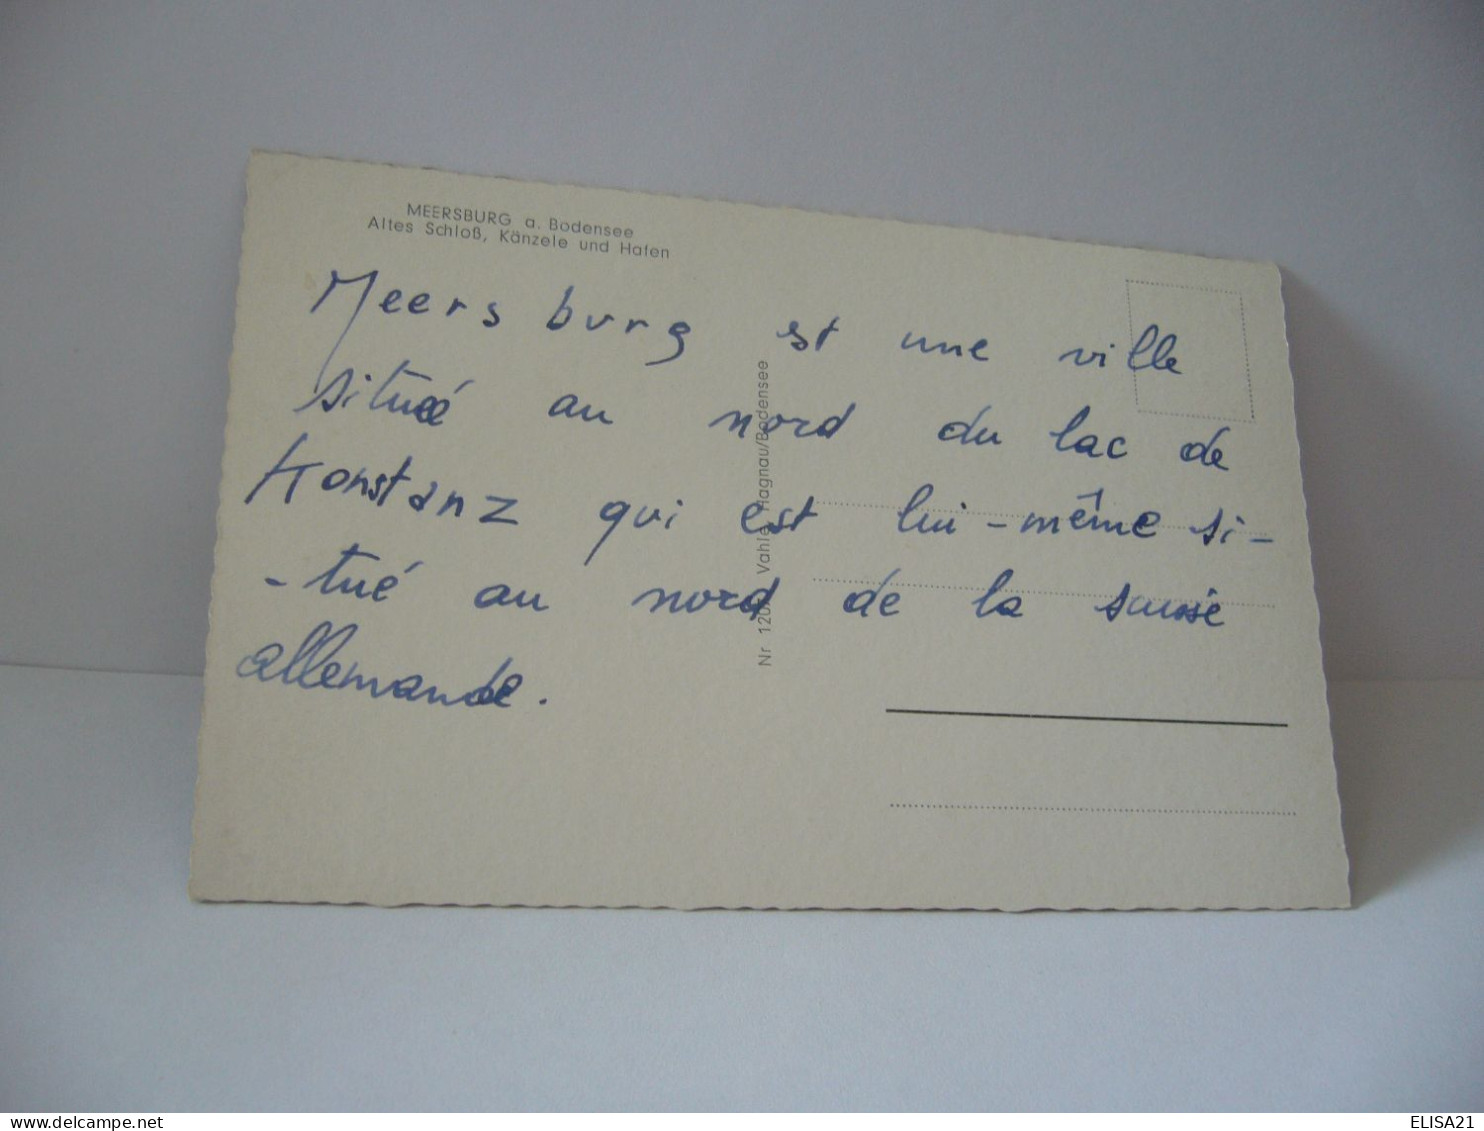 MEERSBURG a. Bodensee
Altes Schloß, Känzele und Hafen
Meersburg est une ville
située au nord du lac de
Konstanz qui est lui-même si-
-tué au nord de la suisse
allemande.
Nr Vahle, Hagnau/Bodensee
ELISA21